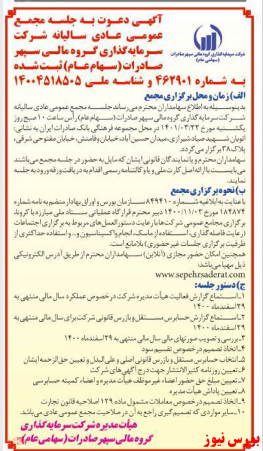 آگهی دعوت به جلسه مجمع
عمومی عادی سالیانه شرکت
سرمایه‌گذاری گروه مالی سپهر
صادرات (سهام عام) ثبت شده
به شماره ۴۶۲۹۰۱ و شناسه ملی ۱۴۰۰۴۵۱۸۵۰۵
شرکت سرمایه‌گذاری گروه مالی سپهر صادرات
(سهامی عام)
الف) زمان و محل برگزاری مجمع
بدینوسیله به اطلاع سهامداران محترم می‌رساند جلسه مجمع عمومی عادی سالیانه
شرکت سرمایه گذاری گروه مالی سپهر صادرات (سهام عام) رأس ساعت ۱۰ صبح روز
یکشنبه مورخ ۱۴۰۱/۰۳/۲۲ در محل مجموعه فرهنگی بانک صادرات ایران به نشانی:
اتوبان شهید صیاد شیرازی، میدان حسین آباد، خیابان وفامنش، خیابان مفتوحی شرقی،
پلاک ۳۸ برگزار می‌گردد.
سهامداران محترم و یا نمایندگان قانونی ایشان که مایل به حضور در جلسه مجمع می‌باشند
می‌بایست با ارائه اصل کارت ملی و یا وکالتنامه رسمی اقدام به دریافت ورقه ورود به جلسه
نمایند.
ب) نحوه برگزاری مجمع
با عنایت به ابلاغیه شماره ۸۴۹۴۱۰ سازمان بورس و اوراق بهادار منضم به نامه شماره
۱۸۴۸۷۴ مورخ ۱۴۰۰/۱۱/۰۳ دبیر محترم قرارگاه عملیاتی ستاد ملی مبارزه با کرونا،
برگزاری مجامع عمومی شرکت‌ها با رعایت دستورالعمل‌های مربوط به برگزاری اجتماعات
(رعایت فاصله گذاری، استفاده از ماسک، انجام واکسیناسیون و... و استفاده حداکثری از
ظرفیت برگزاری جلسات غیر حضوری) بلامانع است.
همچنین امکان حضور مجازی (آنلاین) سهامداران محترم از طریق آدرس الکترونیکی
ذیل مهیا می‌باشد:
www.sepehrsaderat.com
ج) دستور جلسه:
۱- استماع گزارش فعالیت هیأت مدیره شرکت در خصوص عملکرد سال مالی منتهی به
۲۹ اسفندماه ۱۴۰۰
۲- استماع گزارش حسابرس مستقل و بازرس قانونی شرکت برای سال مالی منتهی به
۲۹ اسفندماه ۱۴۰۰
۳- بررسی و تصویب صورتهای مالی سال مالی منتهی به ۲۹ اسفندماه ۱۴۰۰
۴- اتخاذ تصمیم در خصوص تقسیم سود
۵- انتخاب حسابرس مستقل و بازرس قانونی اصلی و علی البدل و تعیین حق الزحمه ایشان
۶- تعیین روزنامه کثیر الانتشار جهت درج آگهی‌های شرکت
۷- تعیین مبلغ حق حضور اعضاء غیر موظف هیأت مدیره و اعضاء کمیته حسابرسی
۸- تعیین پاداش هیأت مدیره
۹- اتخاذ تصمیم در خصوص معاملات مشمول ماده ۱۲۹ اصلاحیه قانون تجارت
۱۰- سایر مواردی که تصمیم گیری راجع به آن در صلاحیت مجمع عمومی عادی می‌باشد.
هیأت مدیره شرکت سرمایه گذاری
گروه مالی سپهر صادرات (سهامی عام)
بورس نیوز